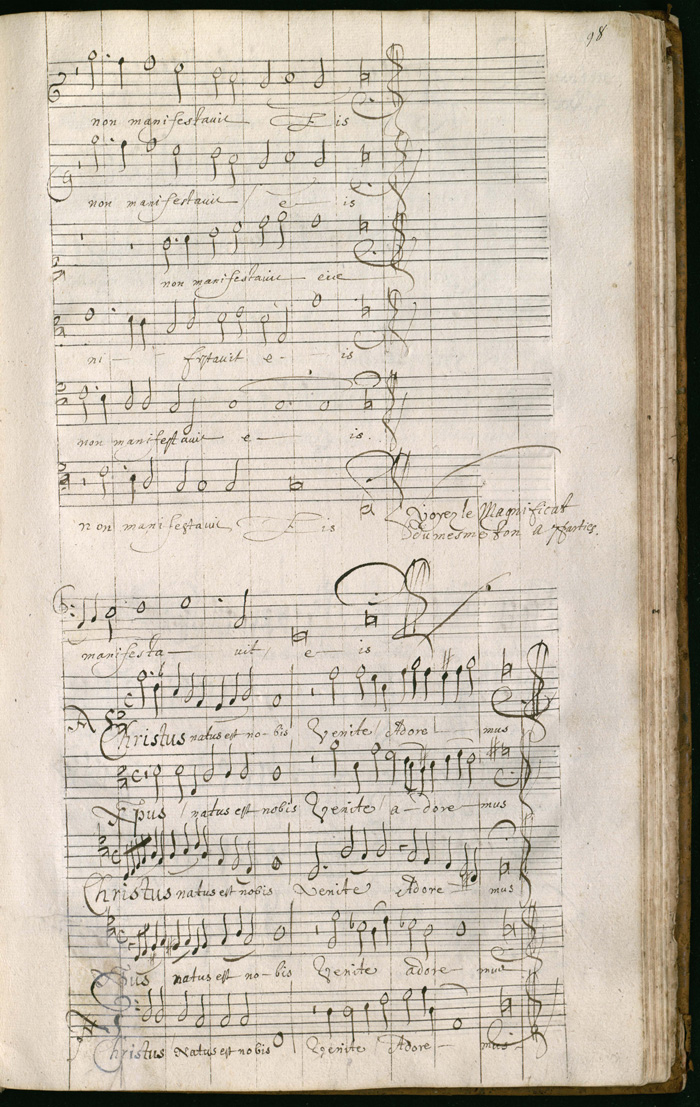 98
non manifestavit Eis
non manifestavit e is
non manifestavit eis
ni festavit e is
non manifestavit e is
non manifestavit Eis
voyez le Magnificat
du mesme ton a parties.
manifesta vit e is
Christus natus est no-bis Venite Adore mus
Xpus natus est nobis Venite a-dore mus
Christus natus est nobis Venite Adore mus
Xpus natus est no-bis Venite adore mus
Christus Natus est nobis Venite Adore mus